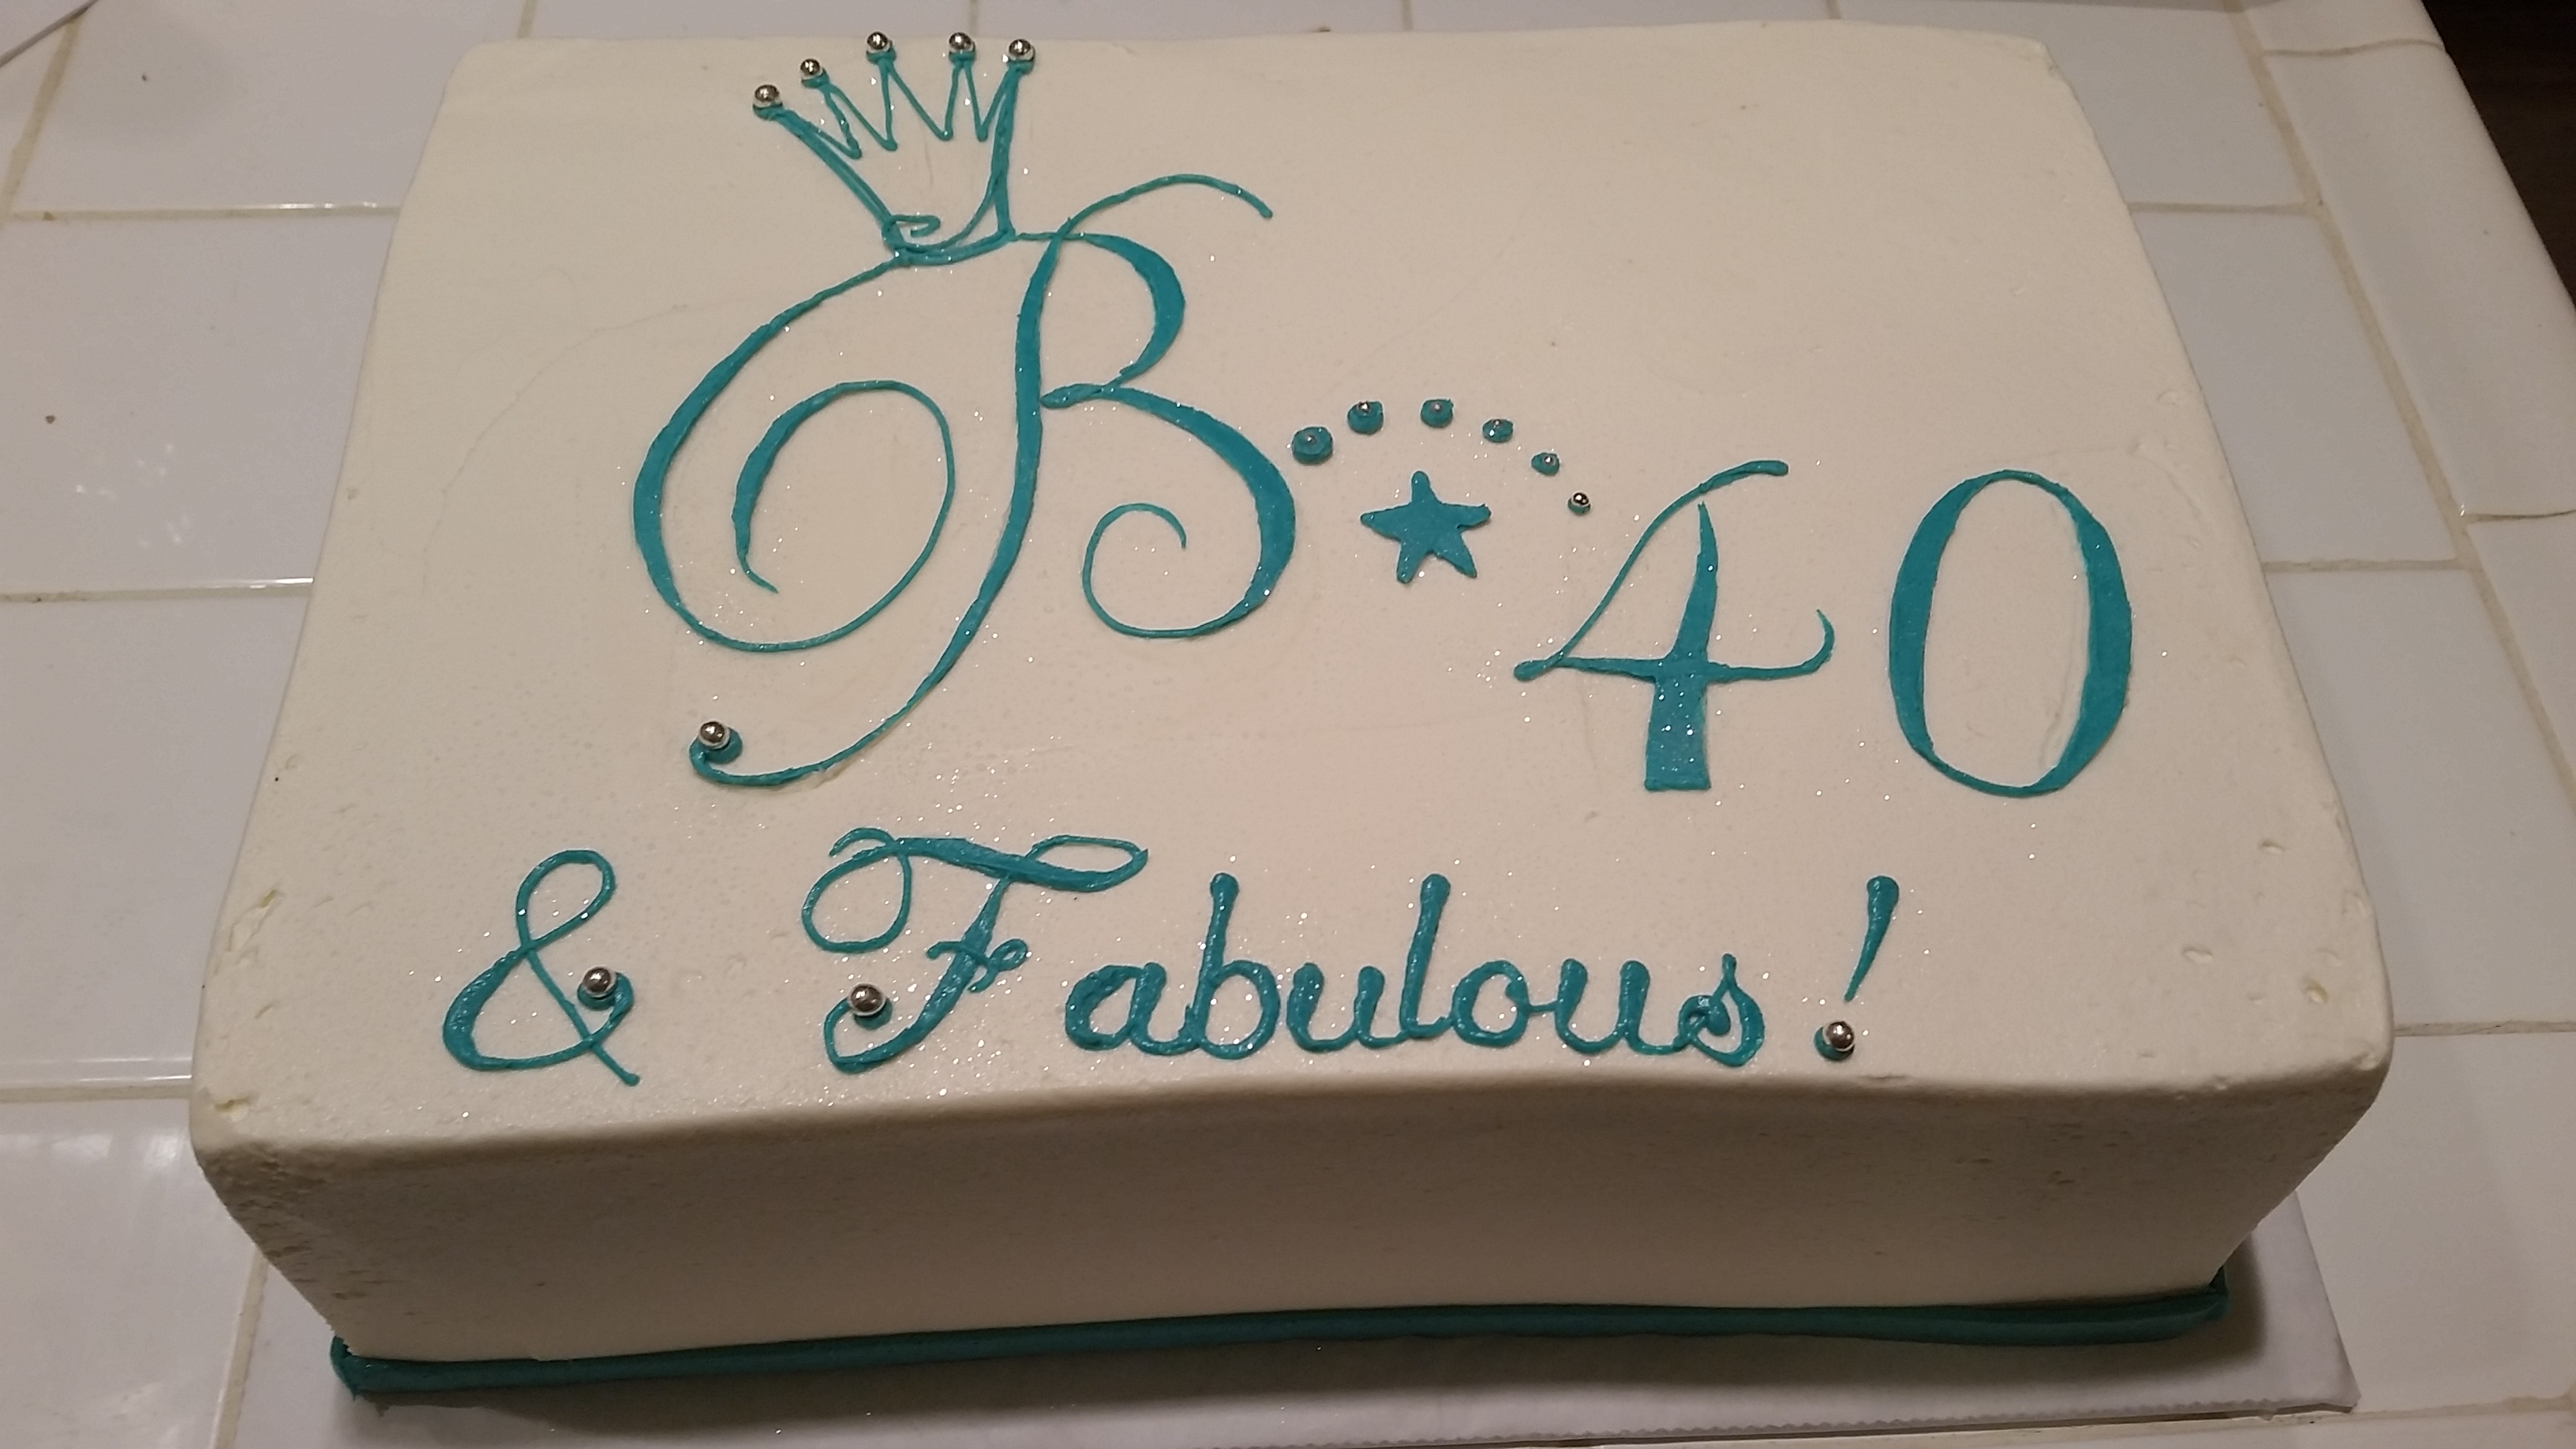 B 40
& Fabulous!